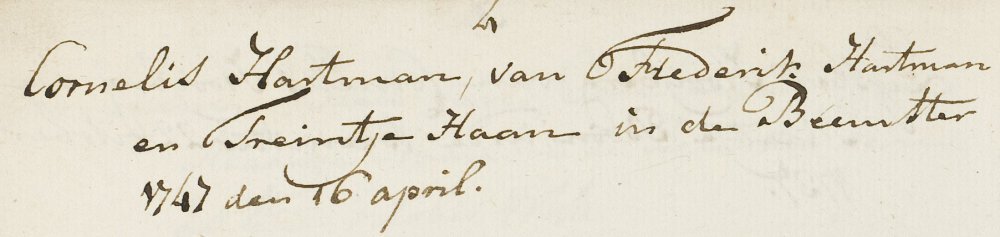 4
Cornelis Hartman, van Frederik Hartman
en Treintje Haan in de Beemster
1747 den 16 april.